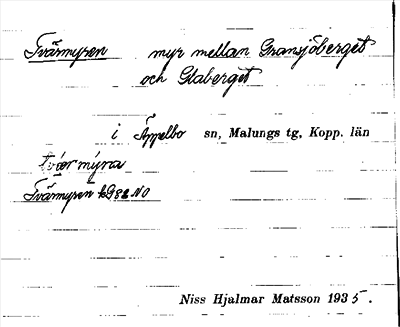 Tvärmyren myr mellan Gransjöberget
och Glaberget
i Äppelbo sn, Malungs tg, Kopp. län
tvärmýra
Tvärmyren G82 NO
Niss Hjalmar Matsson 1935.